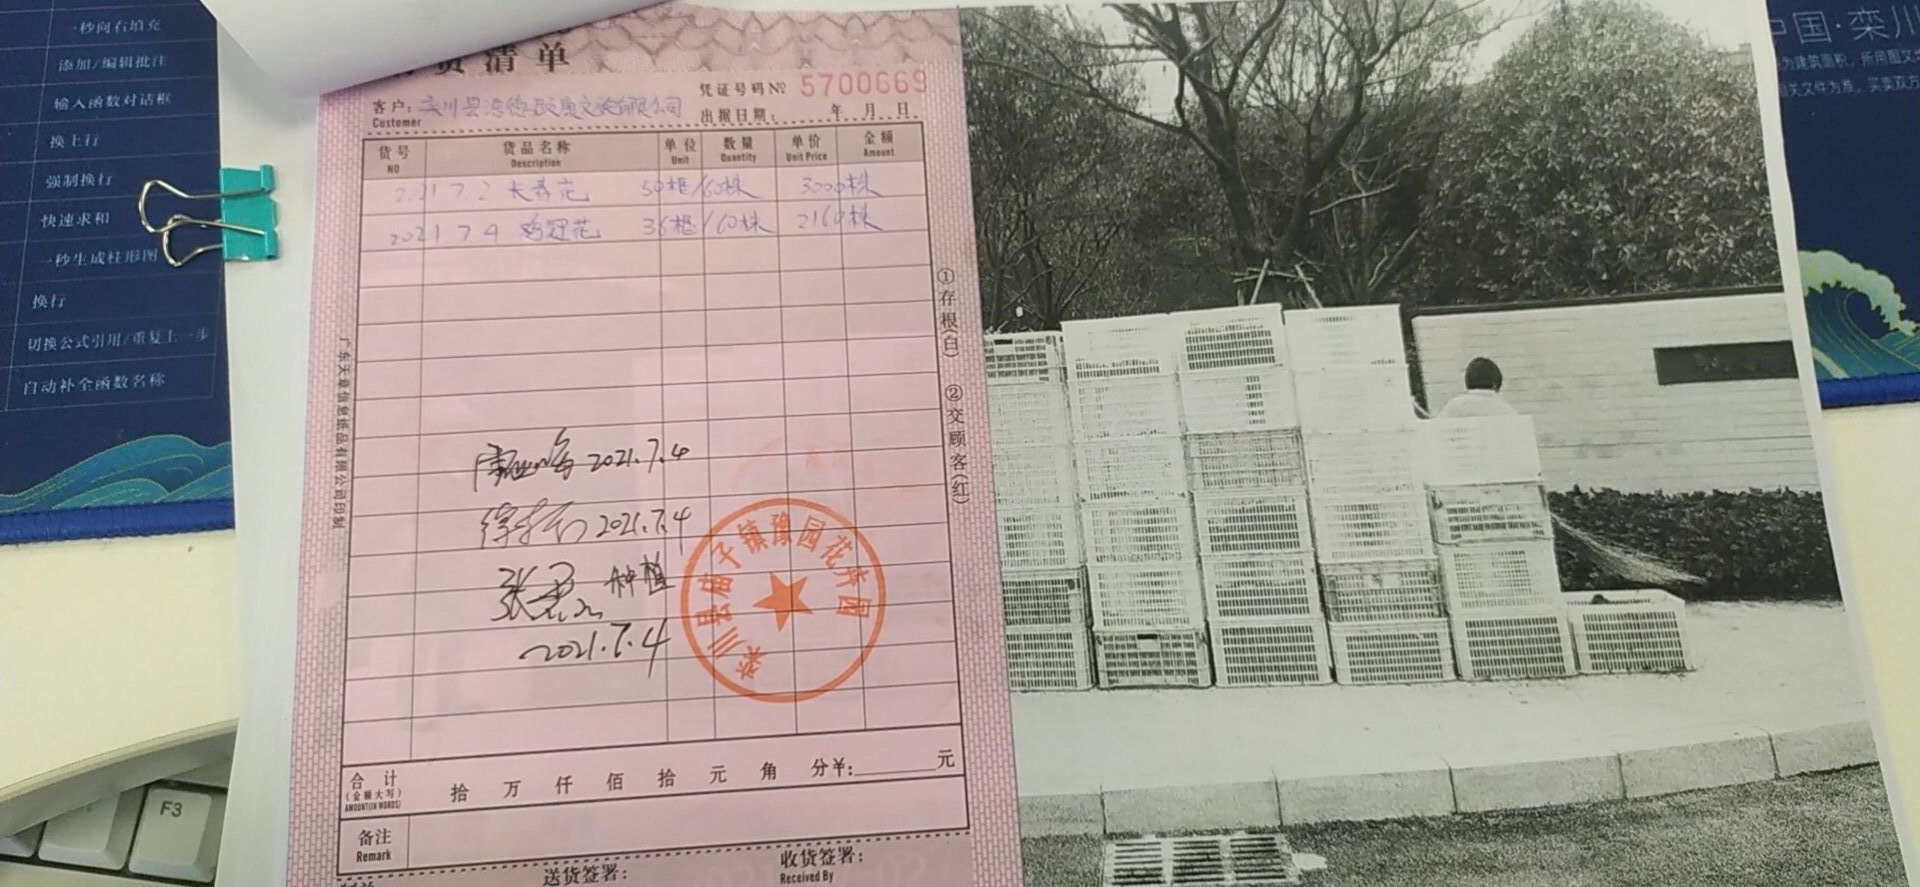 一秒向右填充
添加/编辑批注
输入函数对话框
换上行
强制换行
快速求和
一秒生成柱形图
换行
切换公式引用/重复上一步
自动补全函数名称
F3
货清单
凭证号码№ 5700669
客户: 栾川县
Customer
出据日期: 年 月 日
货号 货品名称 单位 数量 单价 金额
NO Description Unit Quantity Unit Price Amount
2021 7.2 长春花 50框/60株 3000株
2021 7 4 鸡冠花 36框/60株 2160株
2021.7.4
2021.7.4
种植
2021.7.4
栾川县庙子镇豫园花卉园
①存根(白) ②交顾客(红)
广东天章信息纸品有限公司印制
合计 拾 万 仟 佰 拾 元 角 分¥: 元
(金额大写)
AMOUNT(IN WORDS)
备注
Remark
送货签署:
收货签署:
Received By
中国·栾川